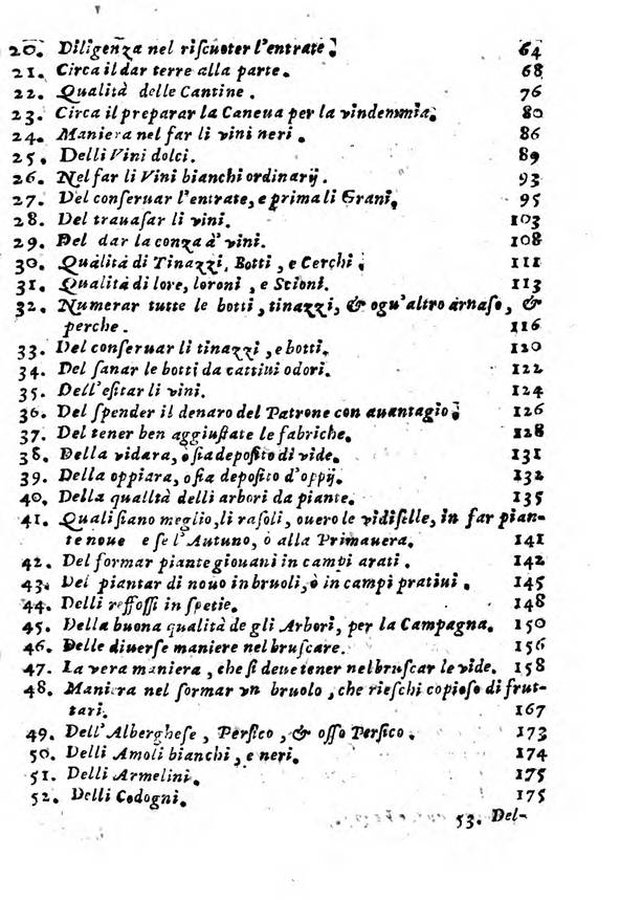 20. Diligenza nel riſcuoter l'entrate. 64
21. Circa il dar terre alla parte. 68
22. Qualità delle Cantine. 76
23. Circa il preparar la Caneua per la vindemmia. 80
24. Maniera nel far li vini neri. 86
25. Delli Vini dolci. 89
26. Nel far li Vini bianchi ordinarij. 93
27. Del conſeruar l'entrate, e prima li Grani. 95
28. Del trauaſar li vini. 103
29. Del dar la conza à vini. 108
30. Qualità di Tinazzi, Botti, e Cerchi. 111
31. Qualità di lore, loroni, e Scioni. 113
32. Numerar tutte le botti, tinazzi, & ogu'altro arnaſo, &
perche. 116
33. Del conſeruar li tinazzi, e botti. 120
34. Del ſanar le botti da cattiui odori. 122
35. Dell'eſitar li vini. 124
36. Del ſpender il denaro del Patrone con auantagio. 126
37. Del tener ben aggiuſtate le fabriche. 128
38. Della vidara, ò ſia depoſito di vide. 131
39. Della oppiara, oſia depoſito d'oppij. 132
40. Della qualltà delli arbori da piante. 135
41. Quali ſiano meglio, li raſoli, ouero le vidiſelle, in far pian-
te noue e ſe l'Autuno, ò alla Primauera. 141
42. Del formar piante giouani in campi arati. 142
43. Del piantar di nouo in bruoli, ò in campi pratiui. 145
44. Delli reffoſſi in ſpetie. 148
45. Della buona qualità de gli Arbori, per la Campagna. 150
46. Delle diuerſe maniere nel bruſcare. 156
47. La vera maniera, che ſi deue tener nel bruſcar le vide. 158
48. Maniera nel formar vn bruolo, che rieſchi copioſo di frut-
tari. 167
49. Dell'Albergheſe, Perſico, & oſſo Perſico. 173
50. Delli Amoli bianchi, e neri. 174
51. Delli Armelini. 175
52. Delli Codogni. 175
53. Del-